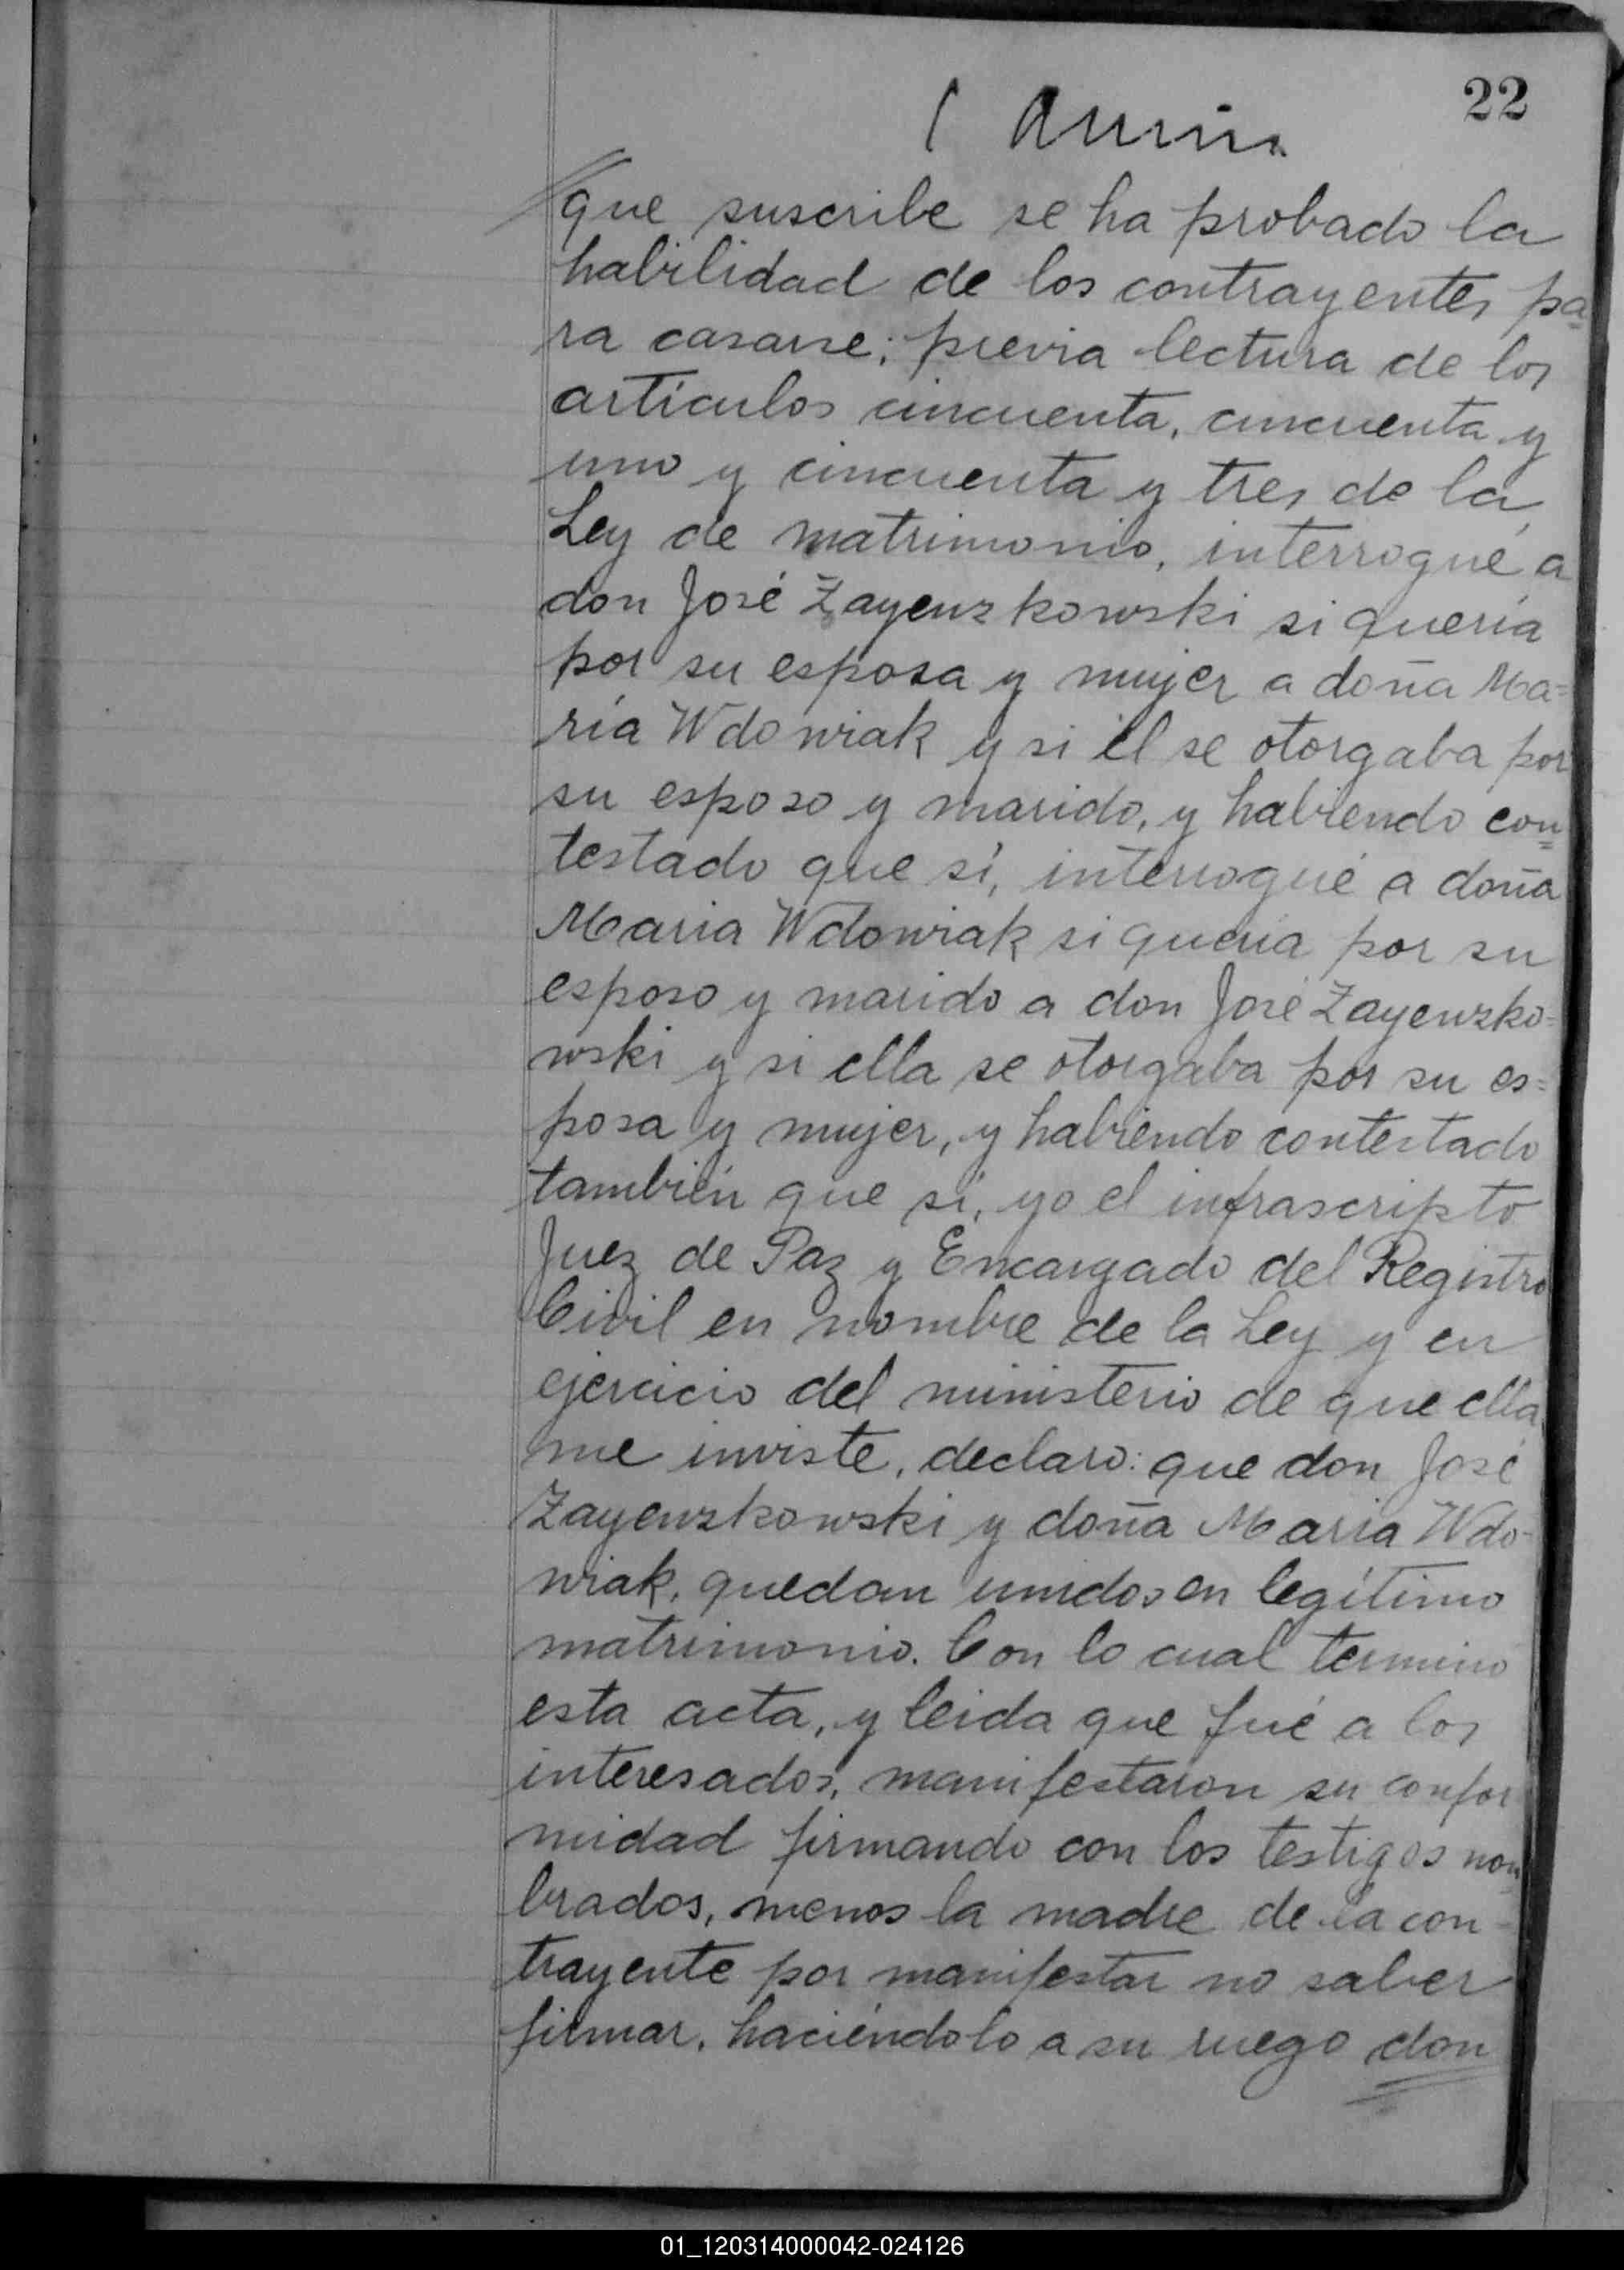 22
que suscribe se ha probado la
habilidad de los contrayentes pa=
ra casarse; previa lectura de los
artículos cincuenta, cincuenta y
uno y cincuenta y tres de la
Ley de matrimonio, interrogué a
don José Zayenzkowski si quería
por su esposa y mujer a doña Ma=
ría Wdowiak y si él se otorgaba por
su esposo y marido, y habiendo con=
testado que sí, interrogué a doña
María Wdowiak si quería por su
esposo y marido a don José Zayenzko=
wski y si ella se otorgaba por su es=
posa y mujer, y habiendo contestado
también que sí, yo el infrascripto
Juez de Paz y Encargado del Registro
Civil en nombre de la Ley y en
ejercicio del ministerio de que ella
me inviste, declaro: que don José
Zayenzkowski y doña María Wdo-
wiak, quedan unidos en legítimo
matrimonio. Con lo cual termino
esta acta, y leida que fué a los
interesados, manifestaron su confor
midad firmando con los testigos nom=
brados, menos la madre de la con=
trayente por manifestar no saber
firmar, haciéndolo a su ruego don
01_120314000042-024126